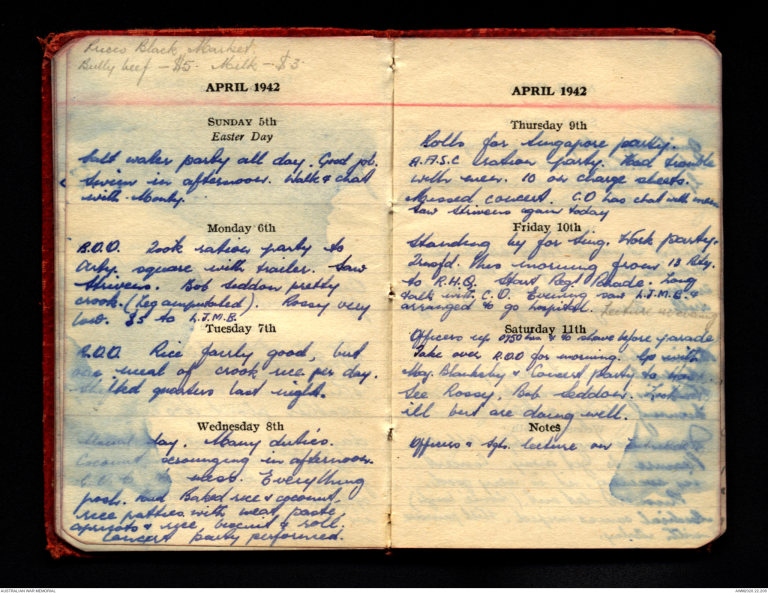 Prices Black Market.
Bully beef - $5. Milk - $3
APRIL 1942
SUNDAY 5th
Easter Day
Salt water party all day. Good job.
Swim in afternoon. Walk & chat
with Monty.
Monday 6th
B.O.O. Took ration party to
Arty. square with trailer. Saw
Strivens. Bob Seddon pretty
crook. (Leg amputated). Rossy very
low. $5 to L.J.M.B.
Tuesday 7th
B.O.O. Rice fairly good, but
one meal of crook rice per day.
Shifted quarters last night.
Wednesday 8th
day. Many duties.
Coconut scrounging in afternoon.
mess. Everything
posh. Had Baked rice & coconut,
rice patties with meat paste,
apricots & rice, biscuit & roll.
Concert party performed.
APRIL 1942
Thursday 9th
Rolls for Singapore party.
A.A.S.C ration party. Had trouble
with men. 10 on charge sheets.
Missed concert. C.O has chat with men
Saw Strivens again today
Friday 10th
Standing by for Sing. Work party.
Transfd. this morning from 13 Bty.
to R.H.Q. Start Reg. Parade. Long
talk with C.O. Evening saw L.J.M.B. &
arranged to go hospital. Lecture morning
Saturday 11th
Officers up 0750 hrs & to shave before parade
Take over B.O.O for morning. Go with
Maj. Blanksby & Concert party to
see Rossy, Bob Seddon. Look
ill but are doing well.
Notes
Officers & Sgts. lecture on